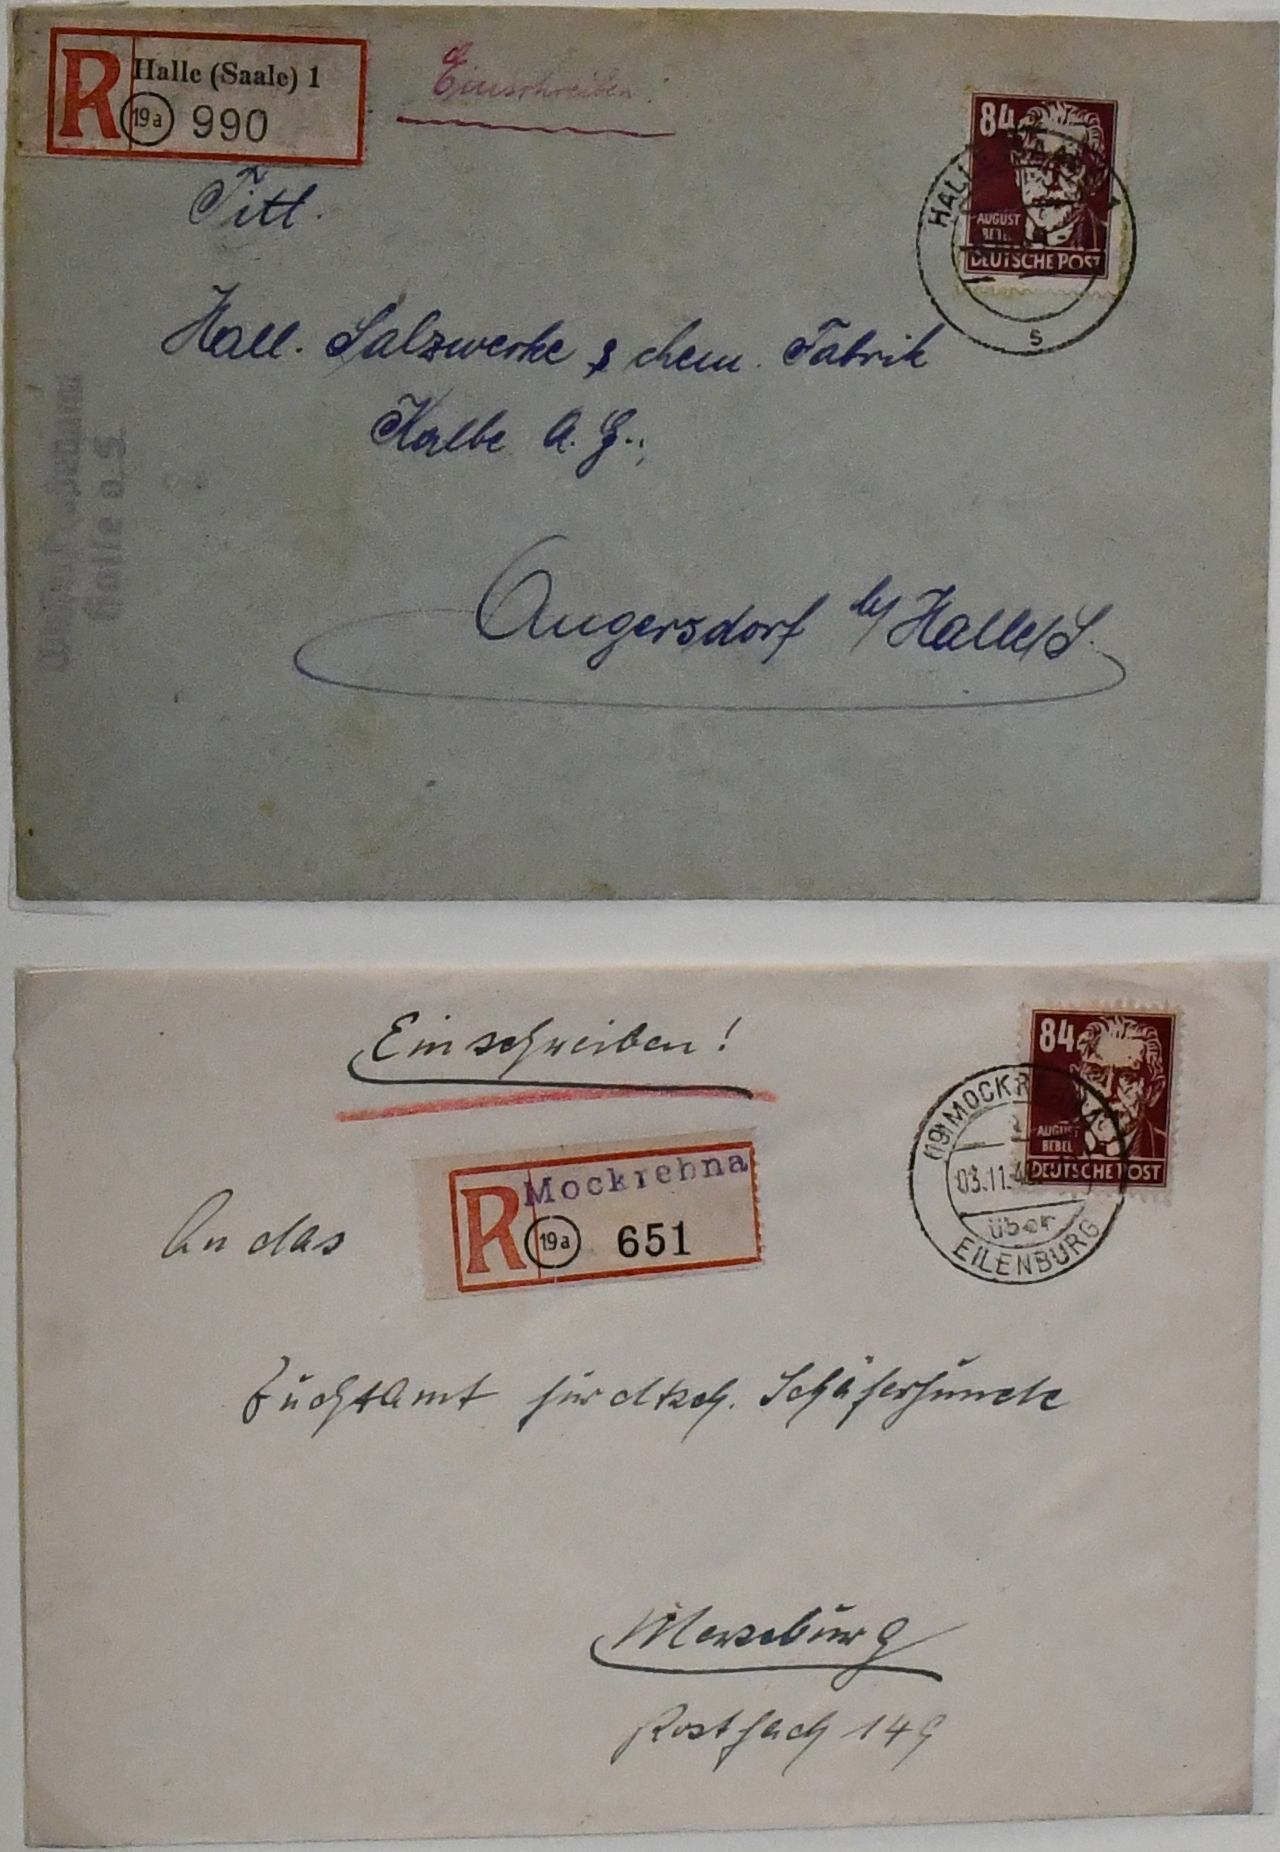 R Halle (Saale) 1
19a 990
Einschreiben.
84
AUGUST
BEBEL
DEUTSCHE POST
S
Titl.
Hall. Salzwerke & chem. Fabrik
Kalbe A. G.,
Halle a.S.
Angersdorf b/ Halle/S.
Einschreiben!
84
AUGUST
BEBEL
DEUTSCHE POST
03.11.4
über
EILENBURG
Mockrehna
R 19a 651
An das
Zuchtamt für dtsch. Schäferhunde
Merseburg
Postfach 149